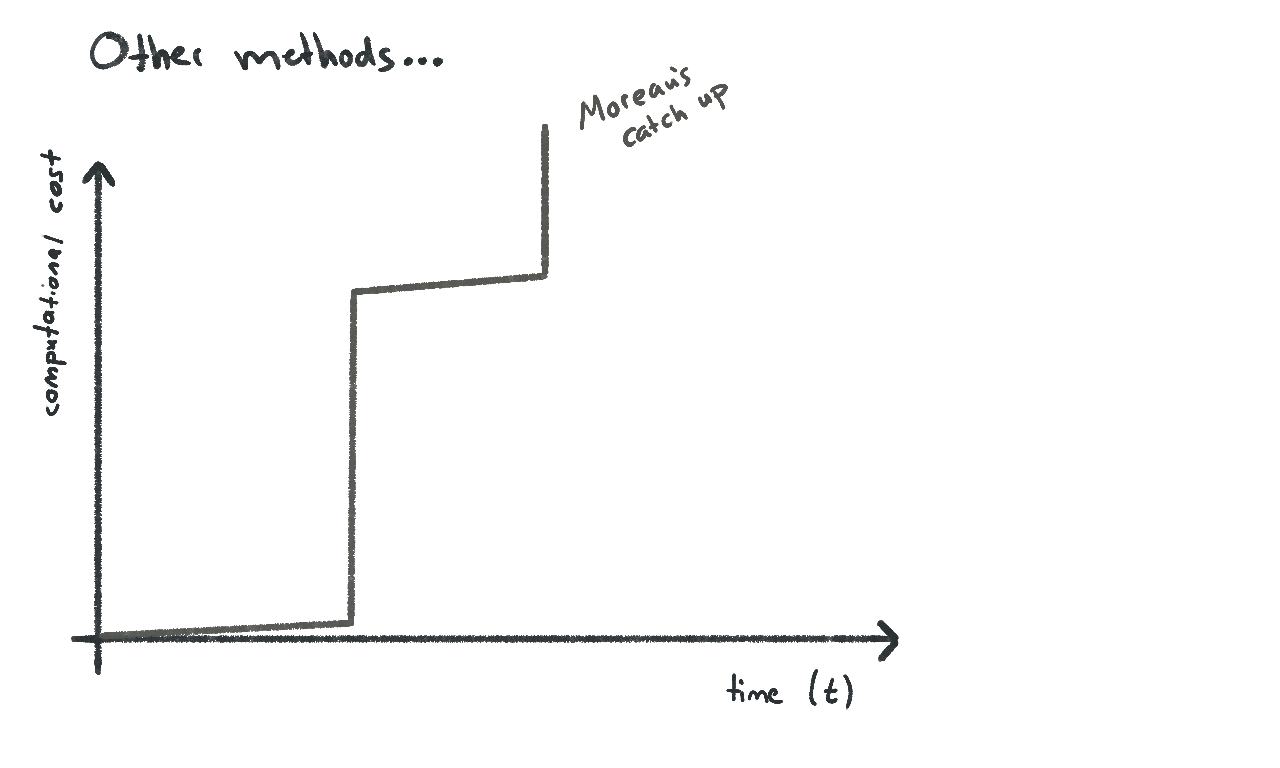 Other methods...
Moreau's
catch up
computational cost
time (t)